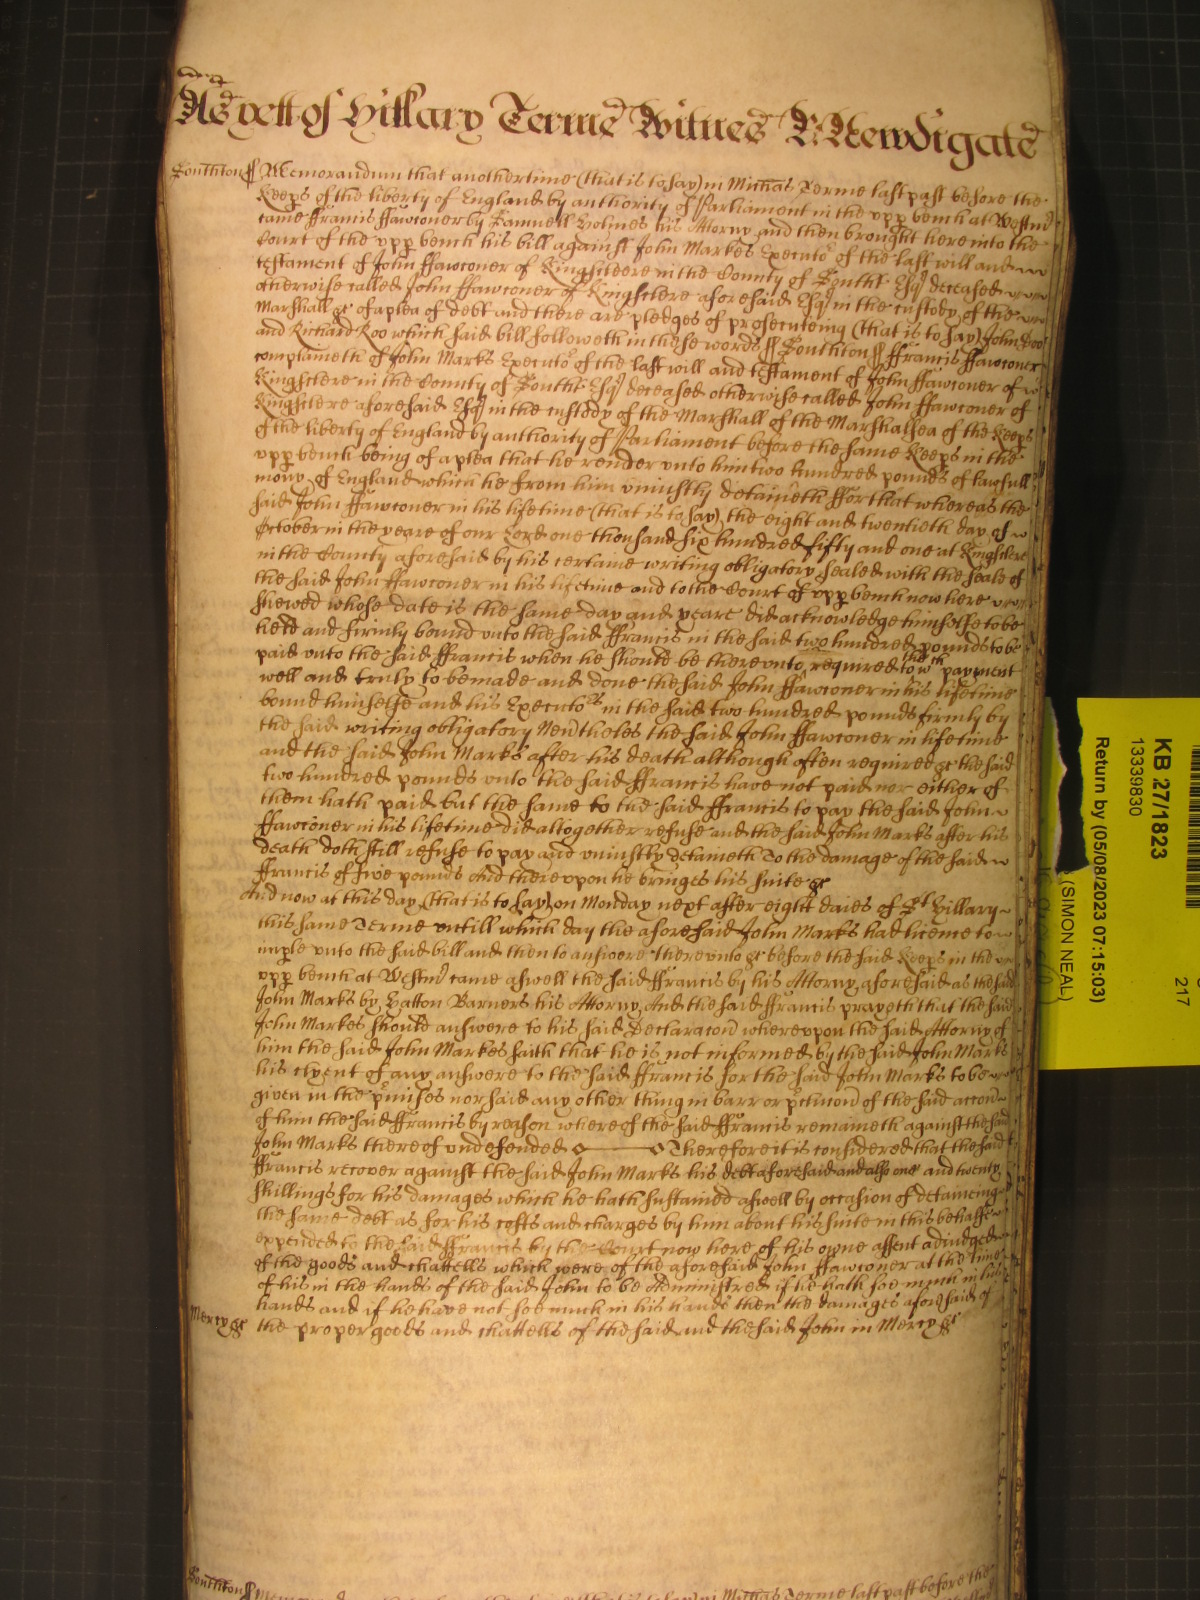 As yett of Hillary Terme Witnes R: Newdigate
Southton ss Memorandum that another time (that is to say) in Michas Terme last past before the
Keeps of the liberty of England by authority of Parliament in the upp bench at Westmr
came ffrancis ffawconer by Samuell Holmes his Attorny and then brought here into the
Court of the upp bench his bill against John Markes Executor of the last will and
testament of John ffawconer of Kingscleere in the County of Southt Esqr deceased
otherwise called John ffawconer of Kingsclere aforesaid Esqr in the custody of the
Marshall &c of a plea of debt and there are pledges of prosecuteing (that is to say) John Doo
and Richard Roo which said bill followeth in these words ss Southton ss ffrancis ffawconer
complaineth of John Marks Executor of the last will and testament of John ffawconer of
Kingsclere in the County of Southt Esqr deceased otherwise called John ffawconer of
Kingsclere aforesaid Esqr in the custody of the Marshall of the Marshalsea of the Keeps
of the liberty of England by authority of Parliament before the same Keeps in the
upp bench being of a plea that he render unto him two hundred pounds of lawfull
mony of England which he from him uniustly detaineth ffor that whereas the
said John ffawconer in his lifetime (that is to say) the eight and twentieth day of
October in the yeare of our Lord one thousand six hundred fifty and one at Kingsclere
in the County aforesaid by his certaine writing obligatory sealed with the seale of
the said John ffawconer in his lifetime and to the Court of upp bench now here
shewed whose date is the same day and yeare did acknowledge himselfe to be
held and firmly bound unto the said ffrancis in the said two hundred pounds to be
paid unto the said ffrancis when he should be thereunto required to the wch payment
well and truly to be made and done the said John ffawconer in his lifetime
bound himselfe and his Executors in the said two hundred pounds firmly by
the said writing obligatory Nevtheles the said John ffawconer in lifetime
and the said John Marks after his death although often required &c the said
two hundred pounds unto the said ffrancis have not paid nor either of
them hath paid but the same to the said ffrancis to pay the said John
ffawconer in his lifetime did altogether refuse and the said John Marks after his
death doth still refuse to pay and uniustly detaineth To the damage of the said
ffrancis of five pounds And thereupon he bringes his suite &c
And now at this day (that is to say) on Monday next after eight daies of St Hillary
this same Terme untill which day the aforesaid John Marks had licence to
imple unto the said bill and then to answere thereunto &c before the said Keeps in the
upp bench at Westmr came aswell the said ffrancis by his Attorny aforesaid as the said
John Marks by Hatton Barners his Attorny And the said ffrancis prayeth that the said
John Markes should answere to his said Declaracon whereupon the said Attorny of
him the said John Markes saith that he is not informed by the said John Marks
his clyent of any answere to the said ffrancis for the said John Marks to be
given in the pmises nor said any other thing in barr or pclucion of the said accon
of him the said ffrancis by reason whereof the said ffrancis remaineth against the said
John Marks thereof undefended Therefore it is considered that the said
ffrancis recover against the said John Marks his debt aforesaid and also one and twenty
shillings for his damages which he hath sustained aswell by occasion of detaineing
the same debt as for his costs and charges by him about his suite in this behalfe
expended to the said ffrancis by the Court now here of his owne assent adiudged
of the goods and chattells which were of the aforesaid John ffawconer at the time
of his in the hands of the said John to be Administred if he hath soe much in his
hands and if he have not soe much in his hands then the damages aforesaid of
Mercy &c the proper goods and chattells of the said and the said John in Mercy &c
Southton ss Memorandum that another time (that is to say) in Michas Terme last past before the
KB 27/1823
13339830
Return by (05/08/2023 07:15:03)
(SIMON NEAL)
217